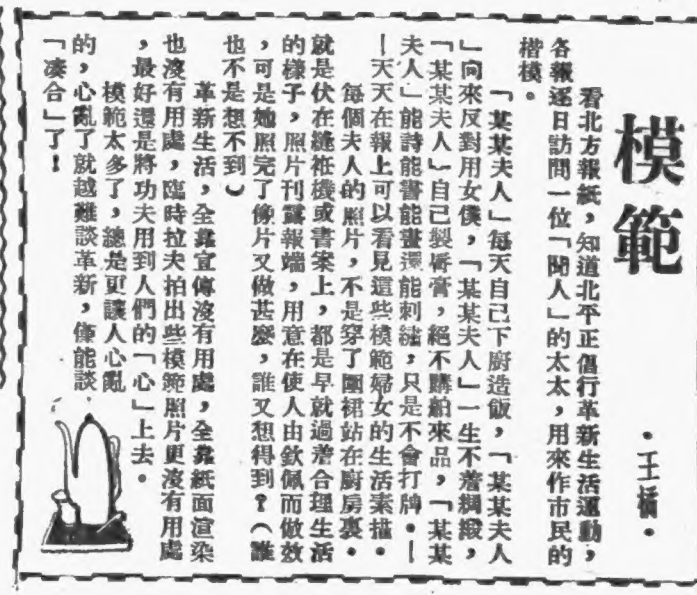 模範
·王橘·
看北方報紙,知道北平正倡行革新生活運動,
各報逐日訪問一位「聞人」的太太,用來作市民的
楷模。
「某某夫人」每天自己下廚造飯,「某某夫人
」向來反對用女僕,「某某夫人」一生不着綢緞,
「某某夫人」自己製唇膏,絕不購舶來品,「某某
夫人」能詩能書能畫還能刺繡,只是不會打牌。—
—天天在報上可以看見這些模範婦女的生活素描。
每個夫人的照片,不是穿了圍裙站在廚房裏。
就是伏在縫袵機或書案上,都是早就過着合理生活
的樣子,照片刊露報端,用意在使人由欽佩而做效
,可是她照完了像片又做甚麼,誰又想得到?(誰
也不是想不到)
革新生活,全靠宣傳沒有用處,全靠紙面渲染
也沒有用處,臨時拉夫拍出些模範照片更沒有用處
,最好還是將功夫用到人們的「心」上去。
模範太多了,總是更讓人心亂
的,心亂了就越難談革新,僅能談
「凑合」了!